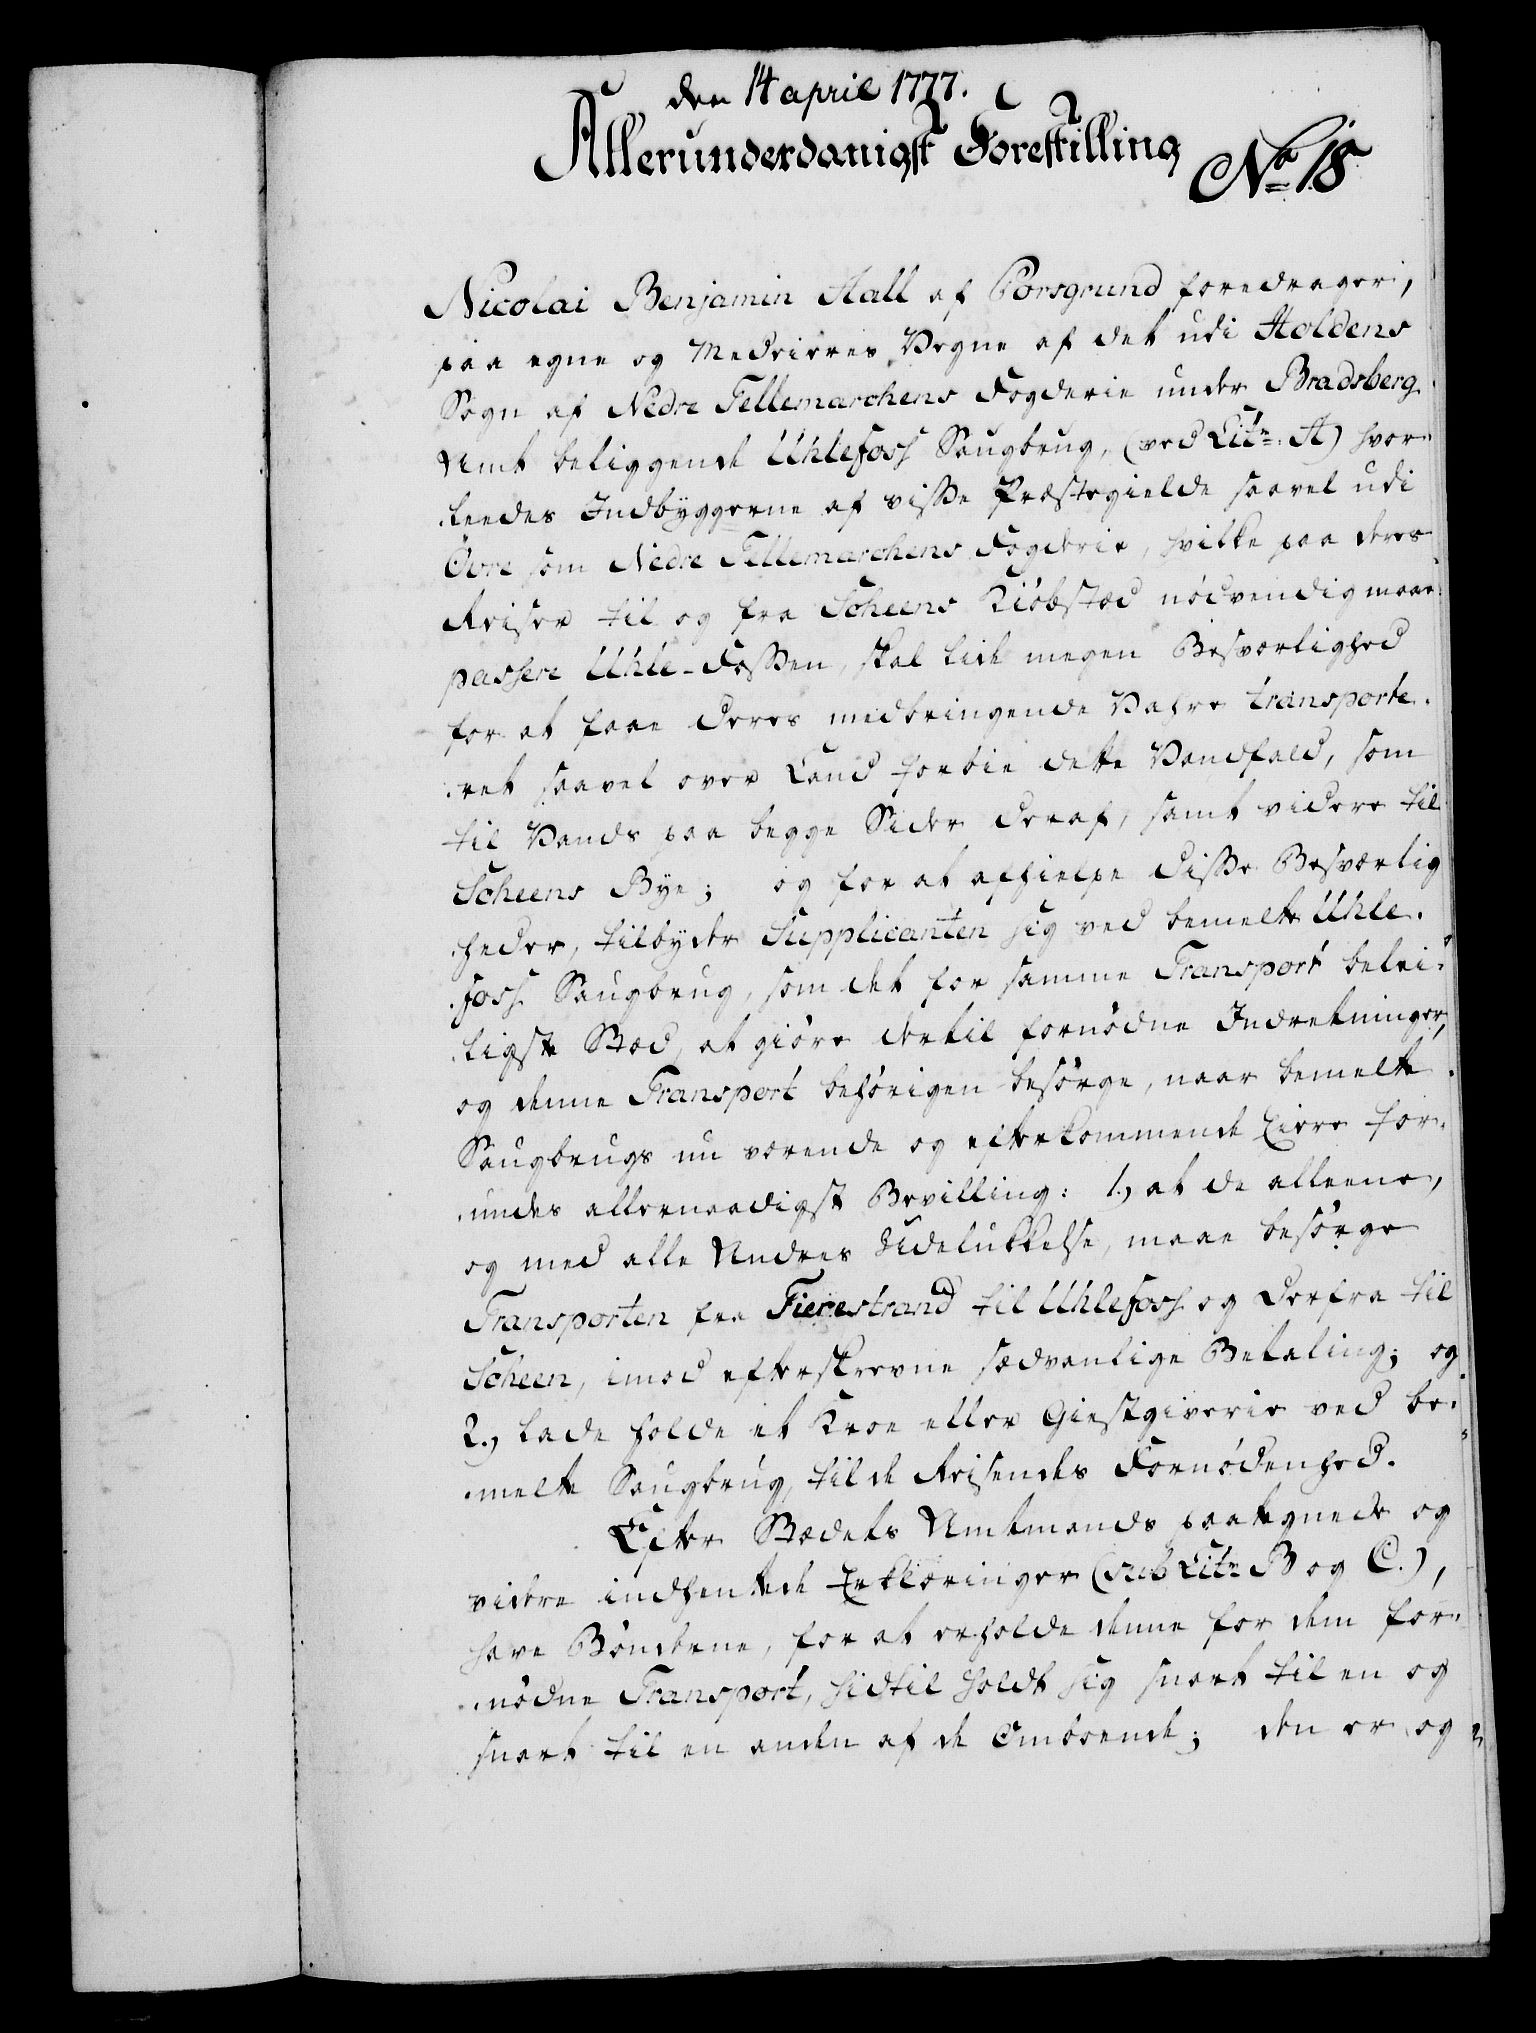 den 14 april 1777.
Allerunderdanigst Forestilling
No 18
Nicolai Benjamin Aall af Porsgrund foredrager,
paa egne og Medeieres Vegne af det udi Holdens
Sogn af Nedre Tellemarchens Fogderie under Bradsberg
Amt beliggende Uhlefoss Saugbrug, (ved Litr: A) hvor-
.leedes Indbyggerne af visse Præstegielde saavel udi
Övre som Nedre Tellemarchens Fogderie, hvilke paa deres
Reiser til og fra Scheens Kiöbstæd nödvendig maae
passere Uhle-Fossen, skal lide megen Besværlighed
for at faae deres medbringende Vahre transporte.
.ret saavel over Land forbie dette Vandfald, som
til Vands paa begge Sider deraf, samt videre til
Scheens Bye; og for at afhielpe disse Besværlig
.heder, tilbyder Supplicanten sig ved bemelte Uhle.
.foss Saugbrug, som det for samme Transport belei-
.ligste Stæd, at giöre dertil fornödne Indretninger,
og denne Transport behörigen besörge, naar bemelte
Saugbrugs nu værende og efterkommende Eiere for-
.undes allernaadigst Bevilling: 1., at de alleene,
og med alle Andres Udelukkelse, maae besörge
Transporten fra Fierestrand til Uhlefoss og derfra til
Scheen, imod efterskrevne sædvanlige Betaling; og
2., lade holde et Kroe eller Giestgiverie ved be-
.melte Saugbrug, til de Reisendes Fornödenhed.
Efter Stædets Amtmands paategnede og
videre indhentede Erklæringer (sub Litr B og C.),
have Bönderne, for at erholde denne for dem for-
.nödne Transport, hidtil holdt sig snart til en og
snart til en anden af de Omboende; den er og